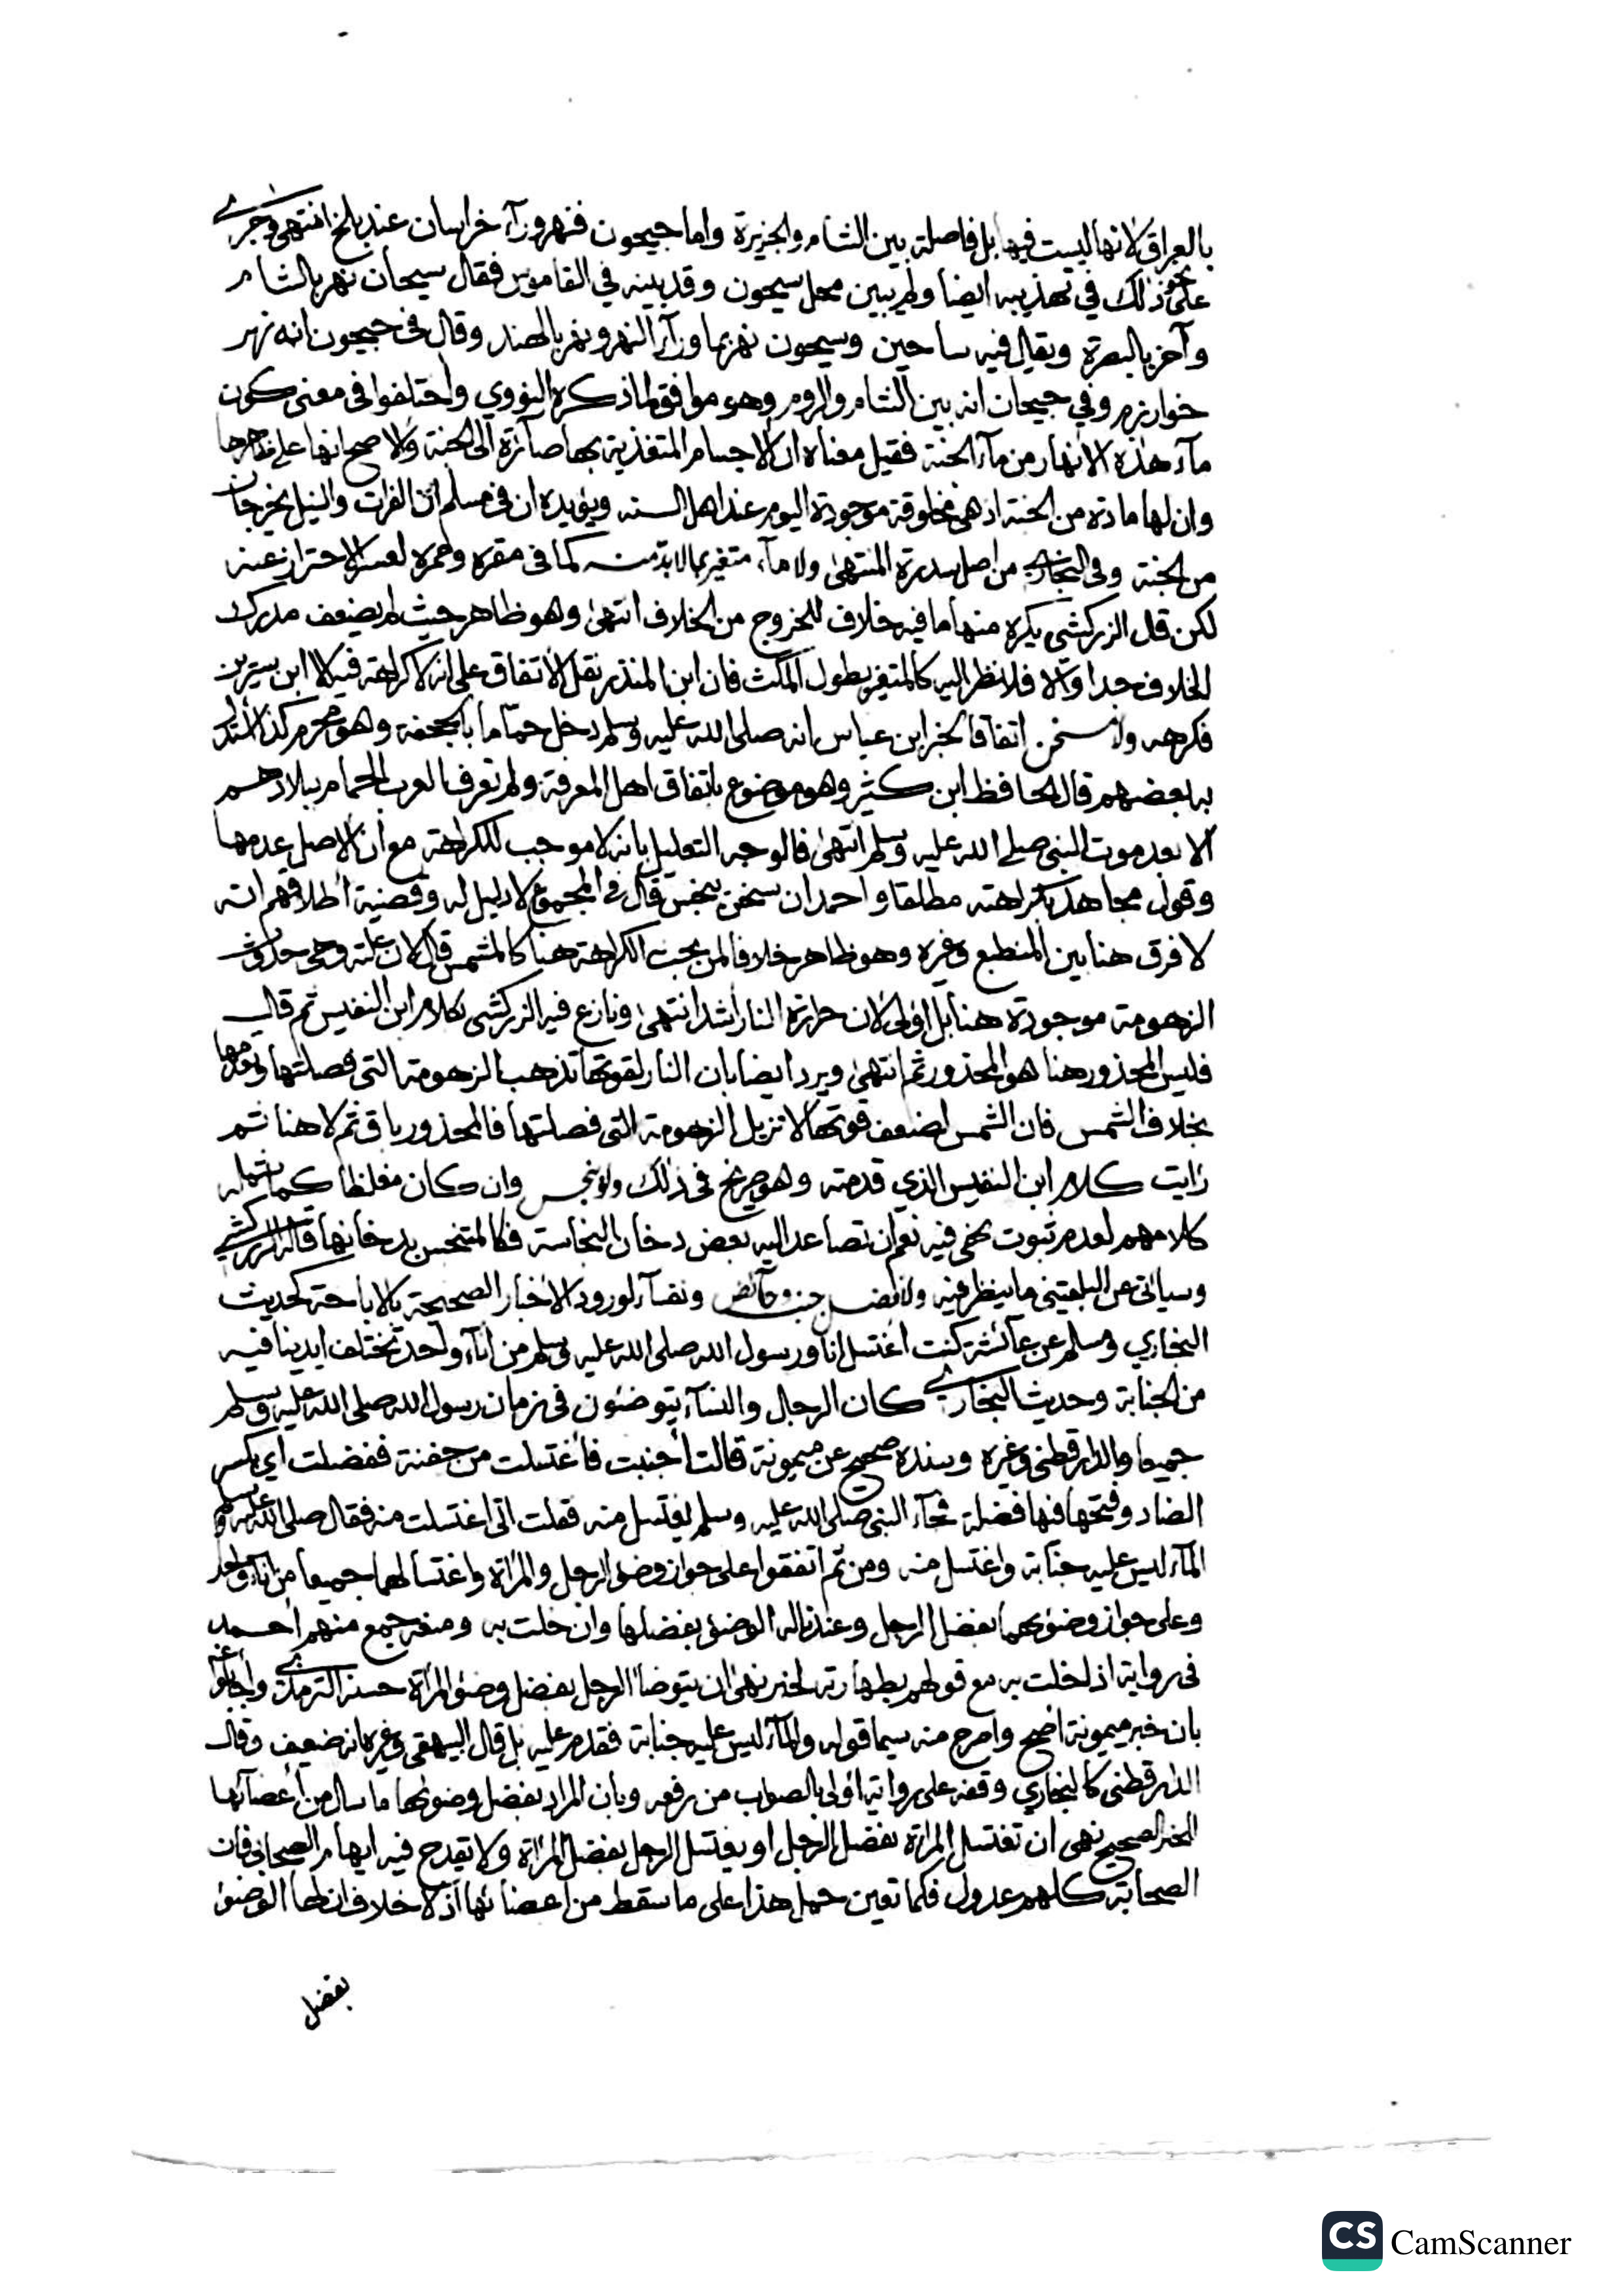 بالعراق لانها ليست فيها بل فاصلة بين الشام والجزيرة واما جيحون فنهر ورآء خراسان عند بلخ انتهى وجرى
على نحو ذلك في تهذيبه ايضا ولم يبين محل سيحون وقد بينه في القاموس فقال سيحان نهر بالشام
وآخر بالبصرة ويقال فيه ساحين وسيحون نهر بما ورآء النهر ونهر بالهند وقال في جيحون انه نهر
خوارزم وفي جيحان انه بين الشام والروم وهو موافق لما ذكره النووي واختلفوا في معنى كون
مآء هذه الانهار من مآء الجنة فقيل معناه ان الاجسام المتغذية بها صآئرة الى الجنة والاصح انها على ظاهرها
وان لها مادة من الجنة اذ هي مخلوقة موجودة اليوم عند اهل السنه ويؤيده ان في مسلم ان الفرات والنيل يخرجان
من الجنة وفي البخاري من اصل سدرة المنتهى ولا مآء متغير بما لا بد منه كما في مقره وممره لعسر الاحتراز عنه
لكن قال الزركشي يكره منها ما فيه خلاف للخروج من الخلاف انتهى وهو ظاهر حيث لم يضعف مدرك
الخلاف جدا والا فلا نظر اليه كالمتغير بطول المكث فان ابن المنذر نقل الاتفاق على انه لا كراهة فيه الا ابن سيرين
فكرهه ولا مسخن اتفاقا لخبر ابن عباس انه صلى الله عليه وسلم دخل حماما بالجحفة وهو محرم كذا استدل
به بعضهم قال الحافظ ابن كثير وهو موضوع باتفاق اهل المعرفة ولم تعرف العرب الحمام ببلادهم
الا بعد موت النبي صلى الله عليه وسلم انتهى فالوجه التعليل بانه لا موجب للكراهة مع ان الاصل عدمها
وقول مجاهد بكراهته مطلقا واحمد ان سخن بنجس قال في المجموع لا دليل له وقضية اطلاقهم انه
لا فرق هنا بين المنطبع وغيره وهو ظاهر خلافا لمن بحث الكراهة هنا كالمشمس قال لان علته وهي حدوث
الزهومة موجودة هنا بل اولى لان حرارة النار اشد انتهى ونازع فيه الزركشي بكلام ابن النفيس ثم قال
فليس المحذور هنا هو المحذور ثم انتهى ويرد ايضا بان النار لقوتها تذهب الزهومة التي فصلتها وتعدمها
بخلاف الشمس فان الشمس لضعف قوتها لا تزيل الزهومة التي فصلتها فالمحذور باق ثم لا هنا ثم
رايت كلام ابن النفيس الذي قدمته وهو صريح في ذلك ولو بنجس وان كان مغلظا كما يشمله
كلامهم لعدم ثبوت نهي فيه نعم ان تصاعد اليه بعض دخان النجاسة فكالمتنجس بدخانها قاله الزركشي
وسياتي عن البلقيني ما ينظر فيه ولا فضل جنب وحآئض ونفسآء لورود الاخبار الصحيحة بالاباحة كحديث
البخاري ومسلم عن عآئشة كنت اغتسل انا ورسول الله صلى الله عليه وسلم من انآء واحد تختلف ايدينا فيه
من الجنابة وحديث البخاري كان الرجال والنسآء يتوضئون في زمان رسول الله صلى الله عليه وسلم
جميعا والدارقطني وغيره وسنده صحيح عن ميمونة قالت اجنبت فاغتسلت من جفنة ففضلت اي بكسر
الضاد وفتحها فيها فضلة فجآء النبي صلى الله عليه وسلم يغتسل منه فقلت اني اغتسلت منه فقال صلى الله عليه وسلم
المآء ليس عليه جنابة واغتسل منه ومن ثم اتفقوا على جواز وضوء الرجل والمرأة واغتسالهما جميعا من انآء واحد
وعلى جواز وضوئهما بفضل الرجل وعندنا له الوضوء بفضلها وان خلت به ومنعه جمع منهم احمد
في رواية اذا خلت به مع قولهم بطهارته لخبر نهى ان يتوضأ الرجل بفضل وضوء المرأة حسنه الترمذي واجابوا عنه
بان خبر ميمونة اصح واصرح منه سيما قوله والمآء ليس عليه جنابة فقدم عليه بل قال البيهقي وغيره انه ضعيف وقال
الدارقطني كالبخاري وقفه على رواته اولى بالصواب من رفعه وبان المراد بفضل وضوئها ما سال من اعضآئها
الخبر الصحيح نهى ان تغتسل المرأة بفضل الرجل او يغتسل الرجل بفضل المرأة ولا يقدح فيه ابهام الصحابي فان
الصحابة كلهم عدول فكما تعين حمل هذا على ما سقط من اعضائها اذ لا خلاف ان لها الوضوء
بفضل
CS CamScanner